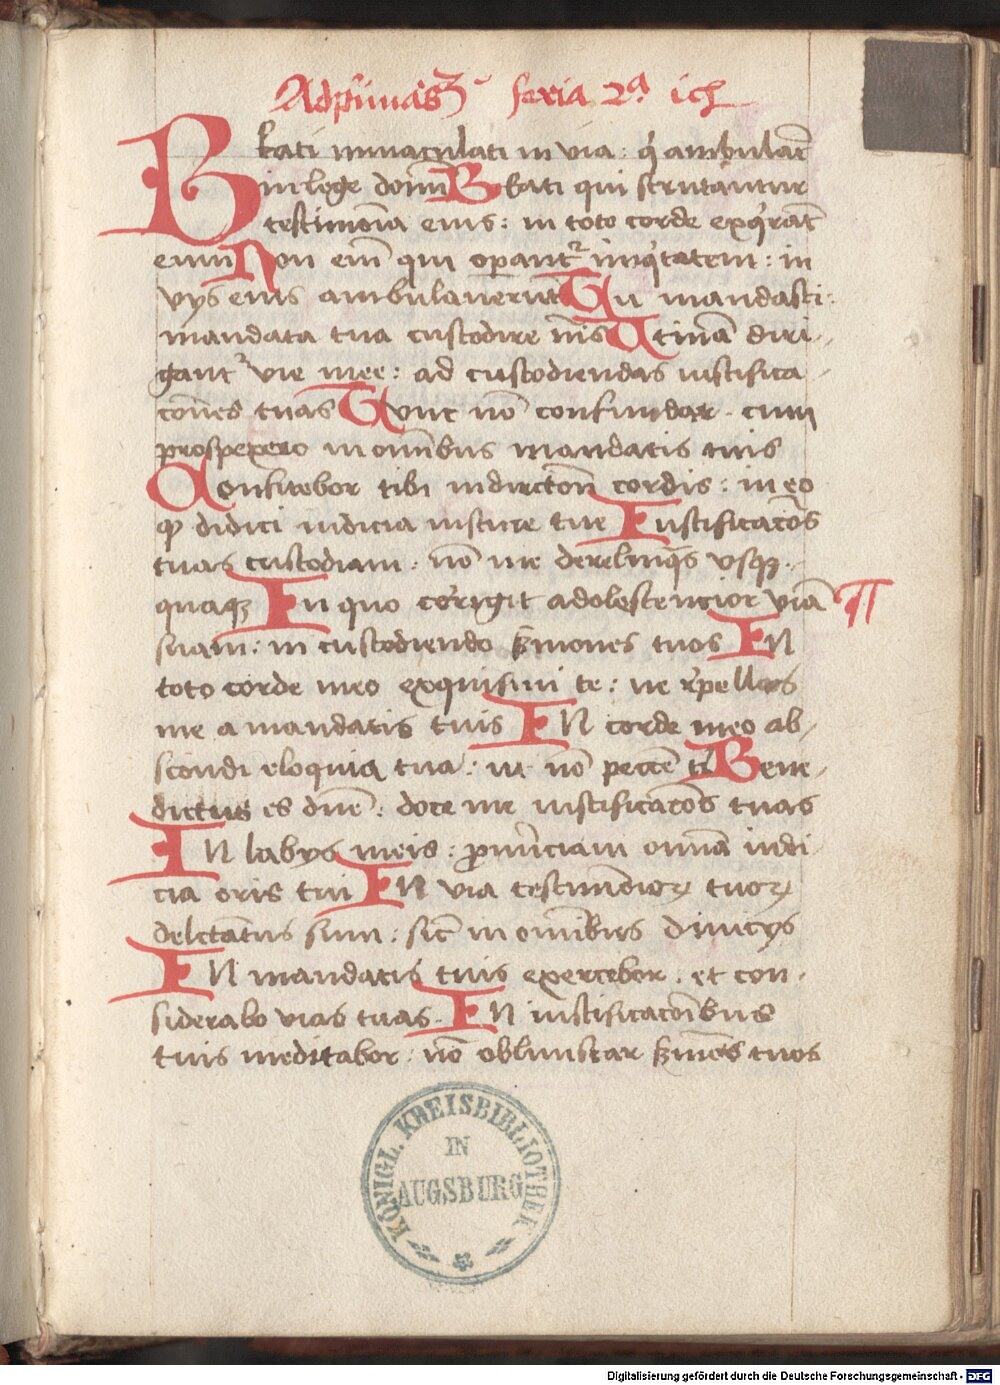 Ad primas feria 2ª
Beati immaculati in via : qͥ ambulāt
in lege domī Beati qui scrutantur
testimōia eius : in toto corde exqͥrāt
eum Non eīm qui operantͬ iniqͥtatem : in
vys eius ambulaverūt Tu mandasti :
mandata tua custodire nīs Utinā diri-
gantͬ vie mee : ad custodiendas iustifica-
cōnes tuas Tunc nō confundar . cum
prospexero in omībus mandatis tuis
Confitebor tibi in dirēctōn cordis : in eo
qͩ didici iudicia iusticie tue Iustificacōēs
tuas custodiam : nō me derelinq̄s vsqꝫ-
quaqꝫ In quo corrigit adolescencior viā
suam : in custodiendo s̄mones tuos In
toto corde meo exquisiui te : ne r̄pellas
me a mandatis tuis In corde meo ab-
scondi eloquia tua : ut nō peccē tͥ Bene-
dictus es dnē : doce me iustificacōēs tuas
In labys meis : pronūciaui omīa iudi-
cia oris tui In via testimōioꝝ tuoꝝ
delctātus sum : sic̄ in omībus divicys
In mandatis tuis exercebor . et con-
siderabo vias tuas . In iustificacōibus
tuis meditabor : nō obliuiscar s̄mōes tuos
KÖNIGL. KREISBIBLIOTHEK
IN
AUGSBURG
Digitalisierung gefördert durch die Deutsche Forschungsgemeinschaft - DFG